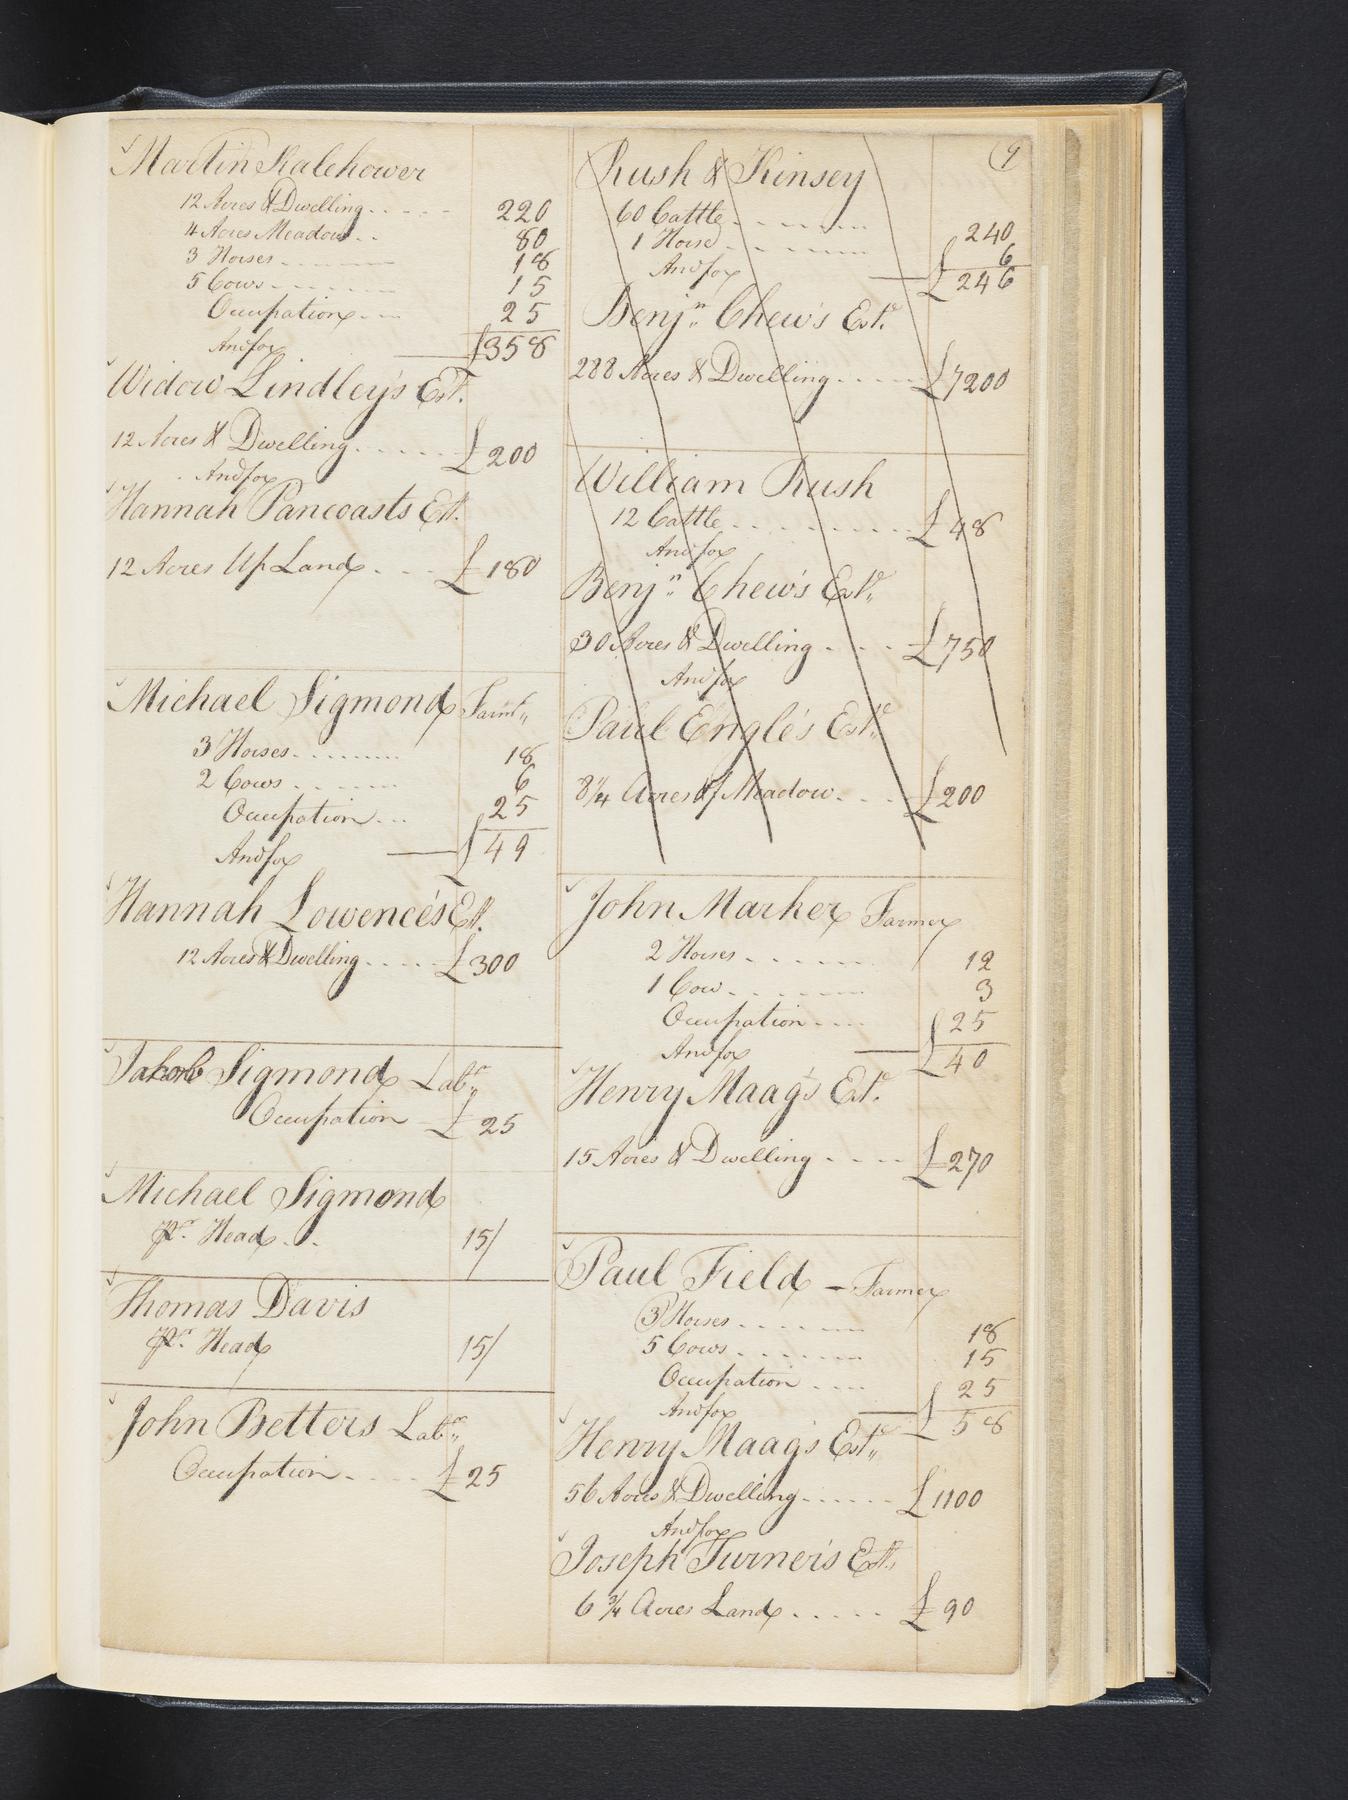 Martin Kalehower
12 Acres & Dwelling 220
4 Acres Meadow 80
3 Horses 18
5 Cows 15
Occupation 25
And for £358
Widow Lindley's Est.
12 Acres & Dwelling £200
And for
Hannah Pancoasts Est.
12 Acres Up Land £180
Michael Sigmond
3 Horses 18
2 Cows 6
Occupation 25
And for £49
Hannah Lowence's Est.
12 Acres & Dwelling £300
Jakob Sigmond Labr
Occupation £25
Michael Sigmond
Pr. Head 15/
Thomas Davis
Pr. Head 15/
John Betters Labr
Occupation £25
9
Rush & Kinsey
60 Cattle 240
1 Horse 6
And for £246
Benjn Chew's Est.
288 Acres & Dwelling £7200
William Rush
12 Cattle £48
And for
Benjn Chew's Este
30 Acres & Dwelling £750
And for
Paul Engle's Este
8 1/4 Acres of Meadow £200
John Marker Farmer
2 Horses 12
1 Cow 3
Occupation 25
And for £40
Henry Maag's Este.
15 Acres & Dwelling £270
Paul Field - Farmer
3 Horses 18
5 Cows 15
Occupation 25
And for £58
Henry Maag's Este
56 Acres & Dwelling £1100
And for
Joseph Turner's Est.
6 3/4 Acres Land £90